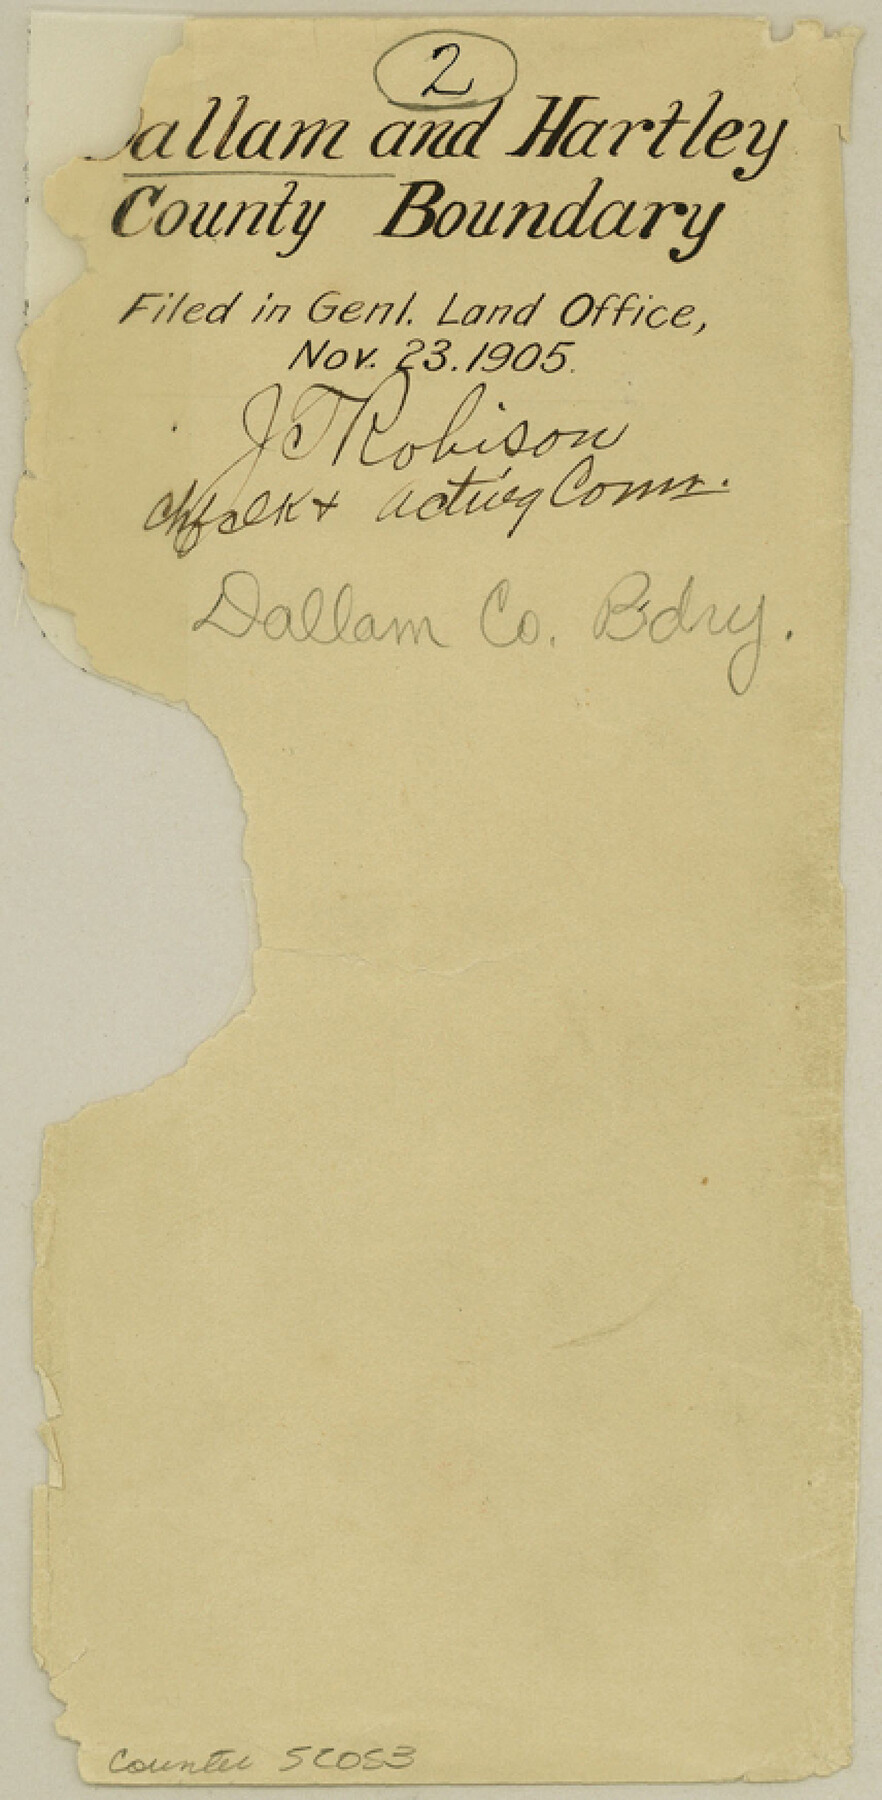 2
Dallam and Hartley
County Boundary
Filed in Genl. Land Office,
Nov. 23. 1905.
J T Robison
Chf Clk & Acting Comr.
Dallam Co. Bdry.
Counter